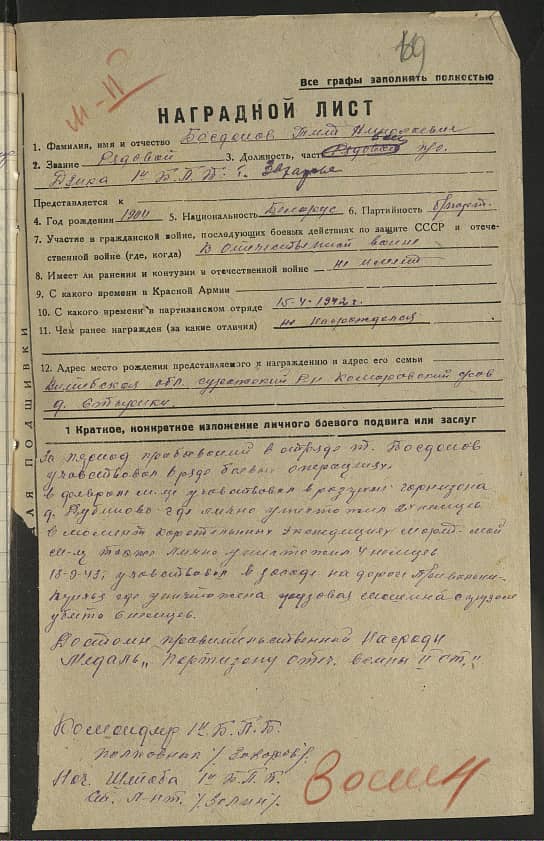 69
М-II
Все графы заполнять полностью
НАГРАДНОЙ ЛИСТ
1. Фамилия, имя и отчество Богданов Тит
2. Звание Рядовой 3. Должность, часть Рядовой п/о.
1й Б.П.Б. г. Захарова
Представляется к
4. Год рождения 1904 5. Национальность Беларус 6. Партийность
7. Участие в гражданской войне, последующих боевых действиях по защите СССР и отече-
ственной войне (где, когда) В отечественной войне
8. Имеет ли ранения и контузии в отечественной войне не имеет
9. С какого времени в Красной Армии
10. С какого времени в партизанском отряде 15-4-1942г.
11. Чем ранее награжден (за какие отличия) не награждался
12. Адрес место рождения представляемого к награждению и адрес его семьи
Витебская обл. Суражский р-н Комаровский
д.
ДЛЯ ПОДШИВКИ
1 Краткое, конкретное изложение личного боевого подвига или заслуг
За период пребывания в отряде т. Богданов
участвовал в ряде боевых операциях.
в феврале м-це участвовал в гарнизона
д. где лично уничтожил 2х немцев
в момент карательных экспедициях март-май
м-ц также лично уничтожил 4 немцев
18-9-43г участвовал в засаде на дороге
где уничтожена грузовая машина с грузом
убито 6 немцев.
Достоин правительственной награды
Медаль „Партизану отеч. войны II ст."
Командир 1й Б.П.Б.
полковник /Захаров/.
Нач. Штаба 1й Б.П.Б.
Ст. л-нт.